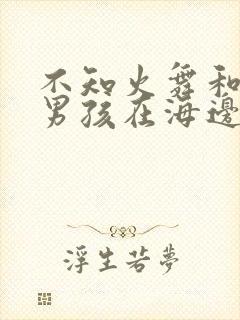 不知火舞和
男孩在海邊
浮生若夢